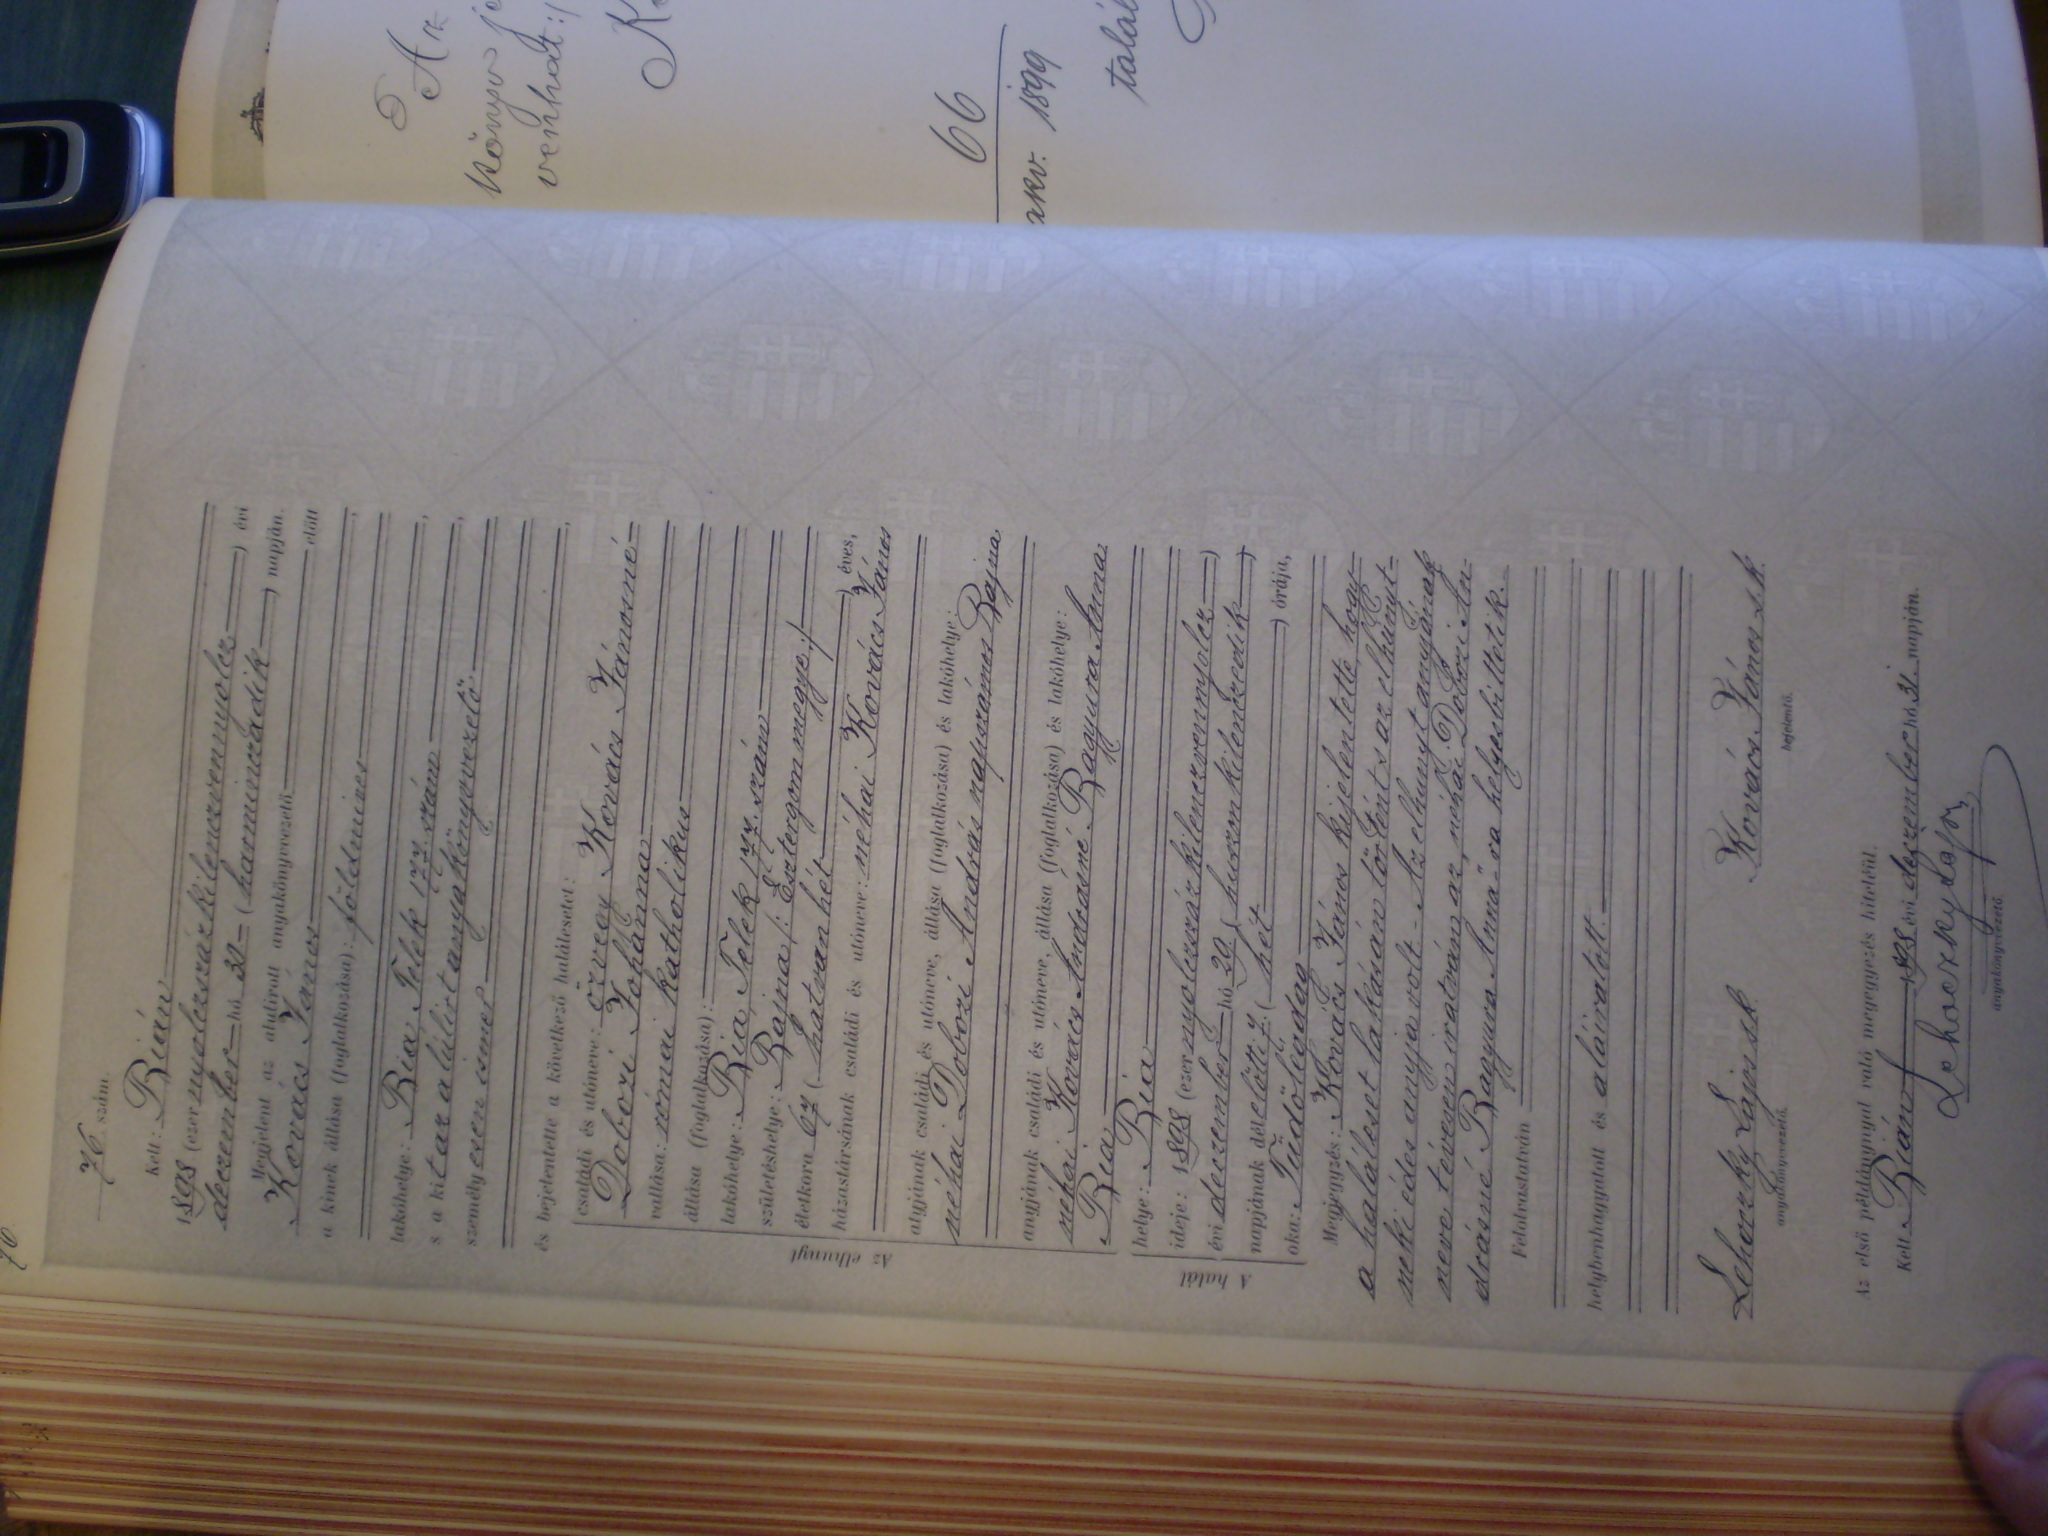 76
76 szám.
Kelt: Bián
1898 (ezer nyolczszázkilenczvennyolcz) évi
deczember hó 30 (harminczadik) napján.
Megjelent az alulirott anyakönyvvezető előtt
Kovács János
a kinek állása (foglalkozása): földmives,
lakóhelye: Bia Telek 177. szám,
s a kit az alúlirt anyakönyvvezető,
személyesen ismer
és bejelentette a következő halálesetet:
Az elhunyt
családi és utóneve: özvegy Kovács Jánosné
Dobozi Johánna
vallása: római katholikus
állása (foglalkozása):
lakóhelye: Bia Telek 177. szám
születéshelye: Bajna /: Esztergom megye:/
életkora 67 (hatvanhét) éves,
házastársának családi és utóneve: néhai Kovács János
atyjának családi és utóneve, állása (foglalkozása) és lakóhelye:
néhai Dobozi András napszámos Bajna
anyjának családi és utóneve, állása (foglalkozása) és lakóhelye:
néhai Kovács Andrásné Bagyura Anna
Bia
A halál
helye: Bia
ideje: 1898 (ezer nyolczszázkilenczvennyolcz)
évi deczember hó 29 (huszonkilenczedik)
napjának délelőtti 7 (hét) órája,
oka: Tüdőlégdag
Megjegyzés: Kovács János kijelentette, hogy
a haláleset lakásán történt s az elhúnyt
neki édes anyja volt. - Az elhunyt anyjának
neve tévesen iratván az, néhai Dobozi An-
drásné Bagyura Anná-ra helyesbittetik.
Felolvastatván
helybenhagyatott és aláiratott.
Lehoczky Lajos sk. Kovács János s.k.
anyakönyvvezető. bejelentő.
Az első példánynyal való megegyezés hiteléül.
Kelt Bián, 1898 évi deczember hó 31. napján.
Lehoczky Lajos
anyakönyvvezető.
könyv
66
1899